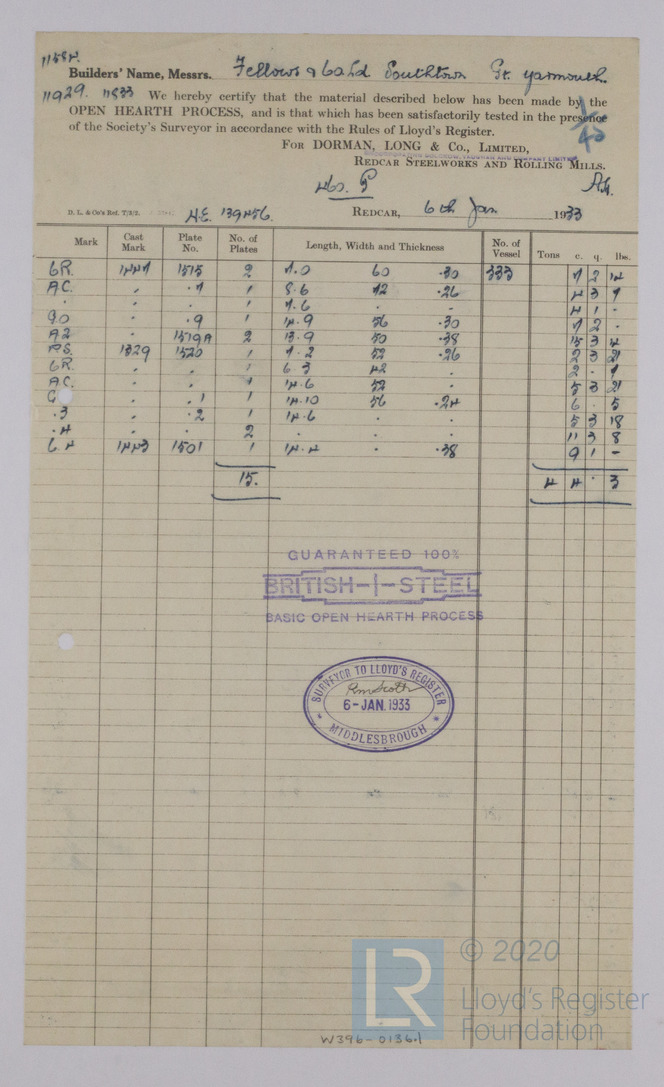 11584.
Builders' Name, Messrs. Fellows & Co Ld Southtown Gt. Yarmouth
11929. 11833 We hereby certify that the material described below has been made by the
OPEN HEARTH PROCESS, and is that which has been satisfactorily tested in the presence
of the Society's Surveyor in accordance with the Rules of Lloyd's Register.
For DORMAN, LONG & Co., Limited,
Redcar Steelworks and Rolling Mills.
D. L. & Co's Ref. 7/2/2. H.E. 139456. Redcar, 6th Jan 1933
Mark Cast Mark Plate No. No. of Plates Length, Width and Thickness No. of Vessel Tons c. q. lbs.
6R. 1447 1515 2 7.0 60 .30 333 7 2 14
AC. . .7 1 8.6 42 .26 4 3 7
. . . 1 7.6 . . 4 1 -
. .9 1 14.9 56 .30 7 2 .
A2 . 1519A 2 13.9 50 .38 15 3 4
1329 1520 1 7.2 52 .26 2 3 21
6R. . . 1 6.3 42 . 2 . 7
AC. . . 1 14.6 52 . 5 3 21
. .1 1 14.10 56 .24 6 . 5
.3 . .2 1 14.6 . . 5 3 18
.4 . . 2 . . . 11 3 8
1443 1501 1 14.4 . .38 9 1 -
15. 4 4 . 3
GUARANTEED 100%
BRITISH-I-STEEL
BASIC OPEN HEARTH PROCESS
SURVEYOR TO LLOYD'S REGISTER
6-JAN.1933
MIDDLESBROUGH
LR
© 2020
Lloyd's Register
Foundation
W396-0136.1